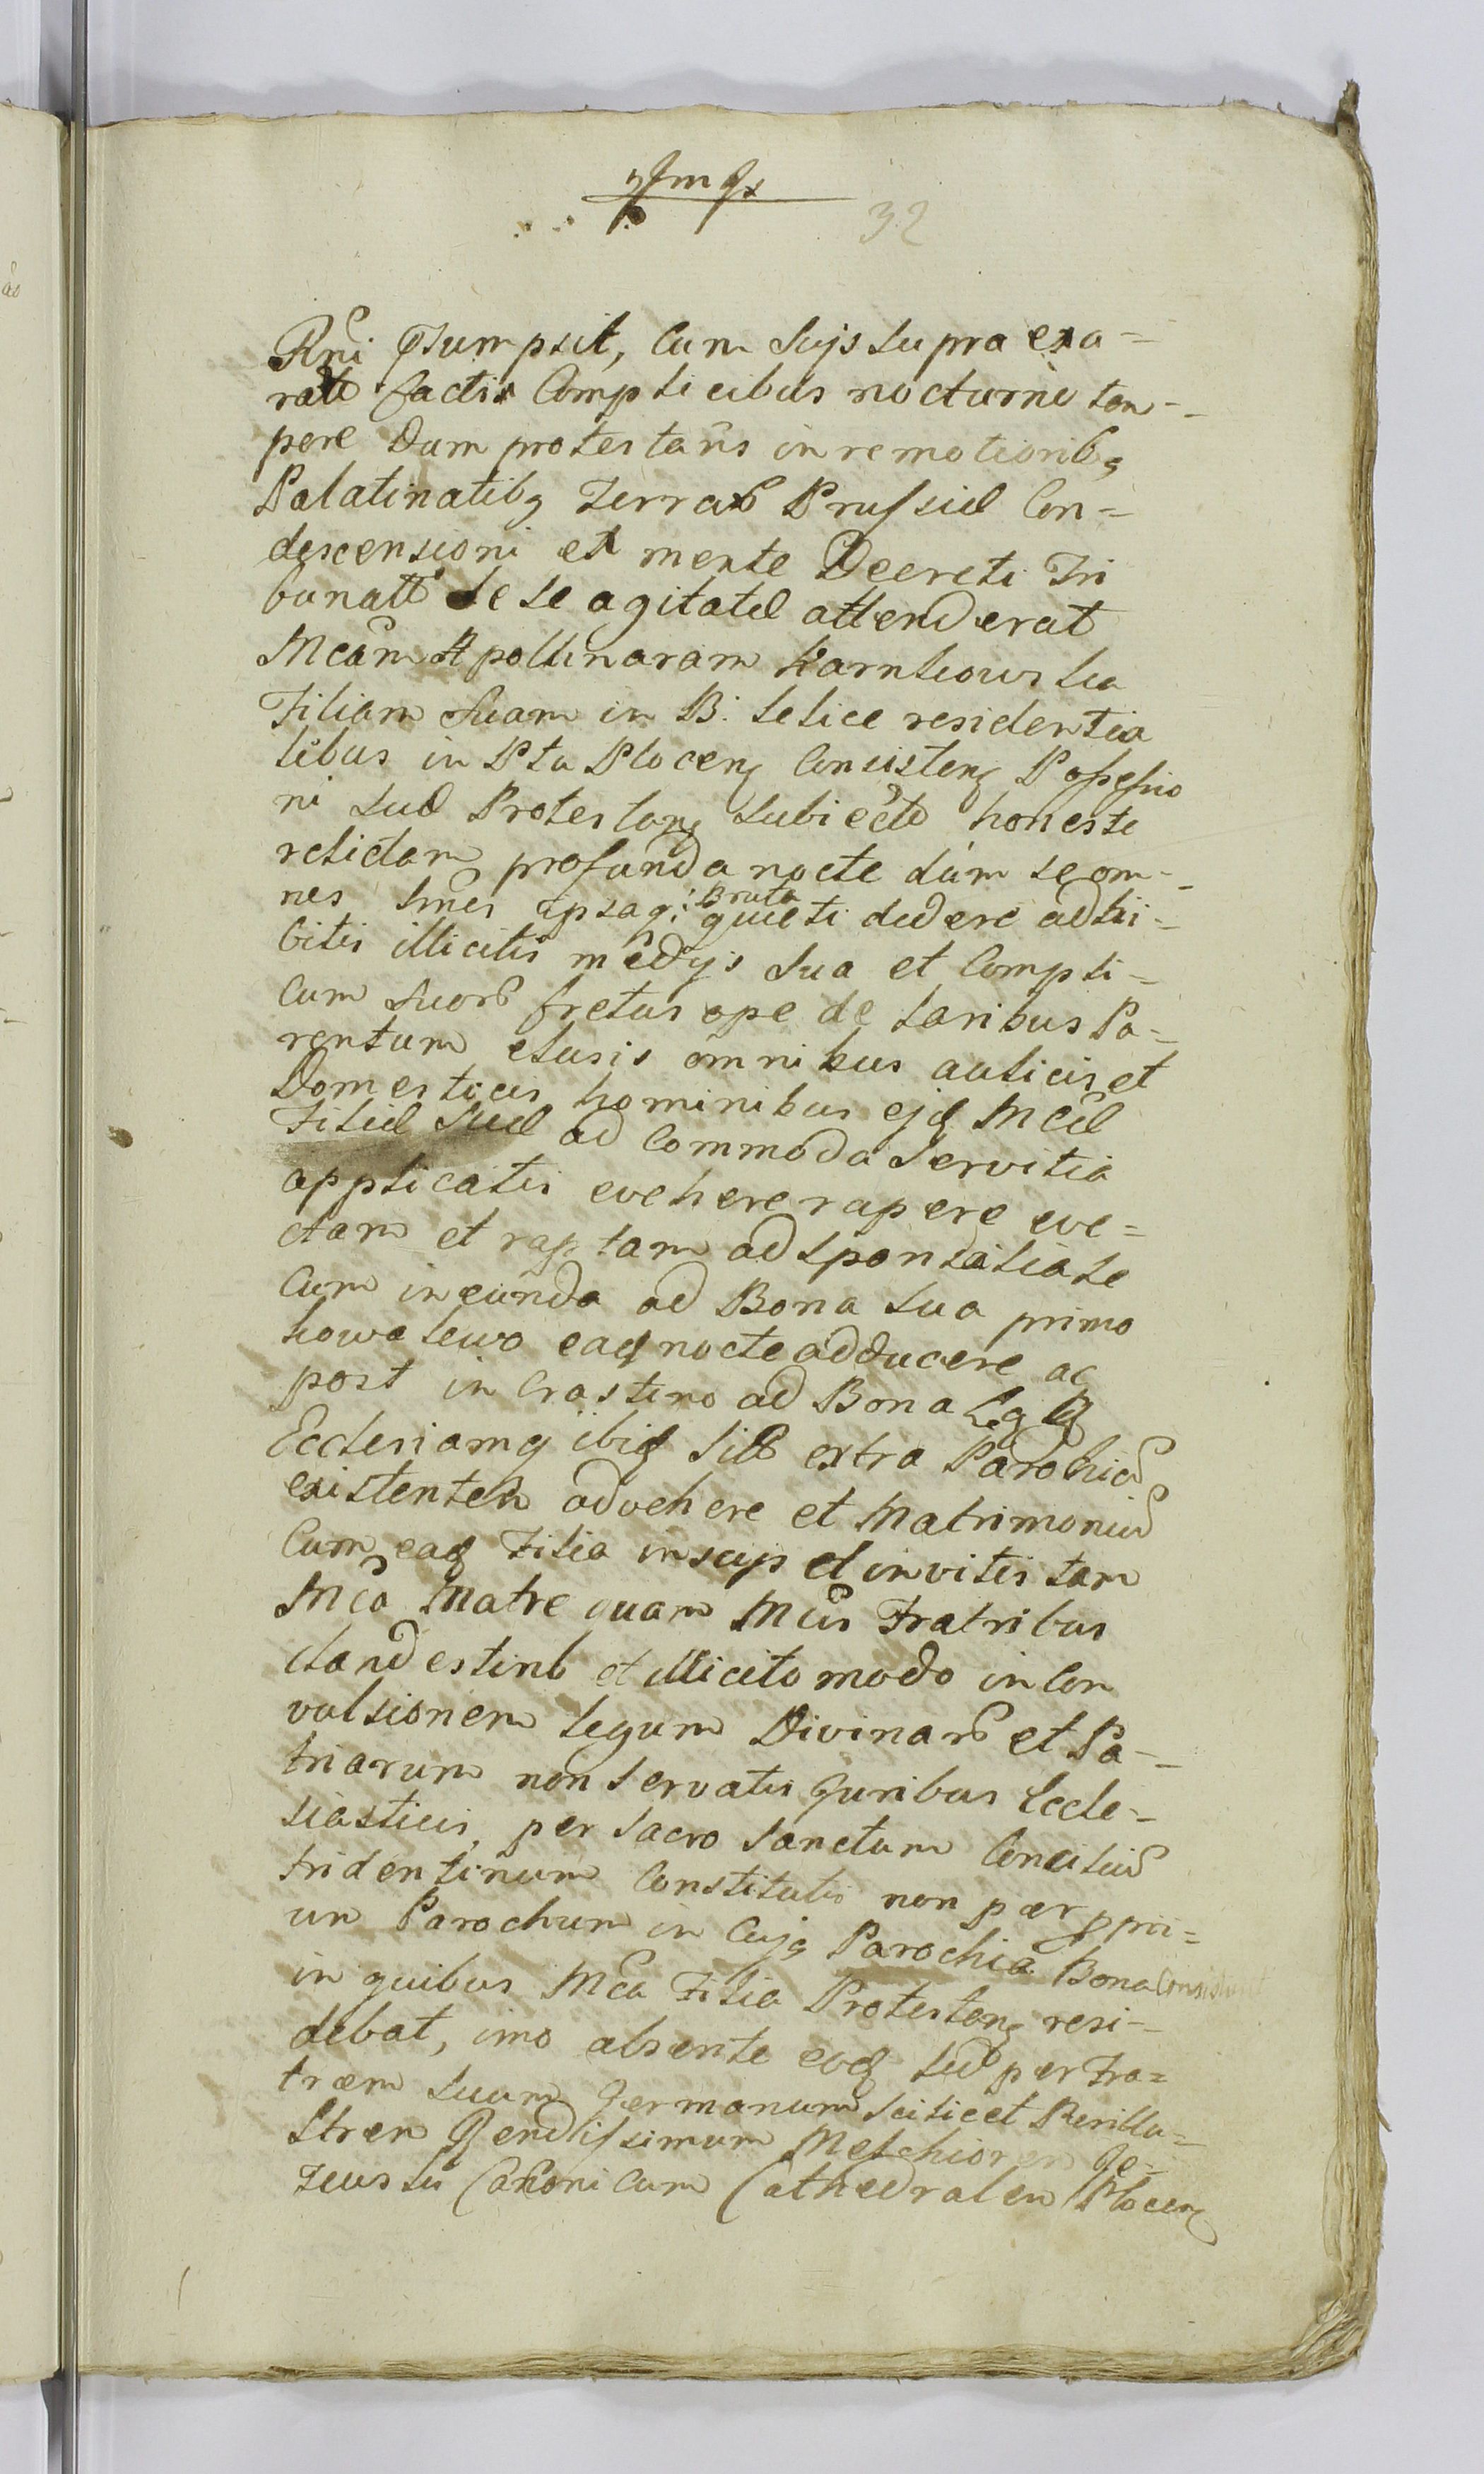 32
Rni Psumpsit, Cum Suis supra exa=
rati facti Complicibus nocturno tem-
pore Dum protestans in remotiorib9
Palatinatib9 Terrar Prussiae Con=
descensioni ex mente Decreti Tri
bunatt sese agitatae attenderat
Mcam Apollinaram Karnkowska
Filiam Suam in B: Lelice residentia
libus in Ptu Plocen Consisten Possessio
ni suae Protestan Subiectis honeste
relictam profunda nocte dum se om-
nes hnes ipsaq; Bruta quieti dedere adhi=
bitis illicitis medijs sua et Compli=
cum suor fretus ope de laribus Pa=
rentum elusis omnibus aulicis et
Domesticis hominibus ejd Mcae
Filiae Suae ad Commoda Servitia
applicatis evehere rapere eve=
ctam et raptam ad sponsalia se
cum ineunda ad Bona sua primo
Kowalewo ead nocte adducere ac
post in Crastino ad Bona
Ecclesiamq ibid sib extra Parochia
existentem advehere et Matrimoniu
Cum ead Filia inscijs et invitis tam
Mca Matre quam Mcis Fratribus
clandestino et illicito modo in Con
vulsionem legum Divinar et Pa=
triarum non servatis Juribus Eccle=
siasticis, per Sacro Sanctum Conciliu
tridentinum Constitutis non per ppri=
um Parochum in Cuj9 Parochia Bona Consistunt
in quibus Mca Filia Protesten resi=
debat, imo absente eod sed per Fra=
trem suum Germanum scilicet Perillu=
strem Rendissimum Melchiorem Ge=
Canonicum Cathedralem Plocen